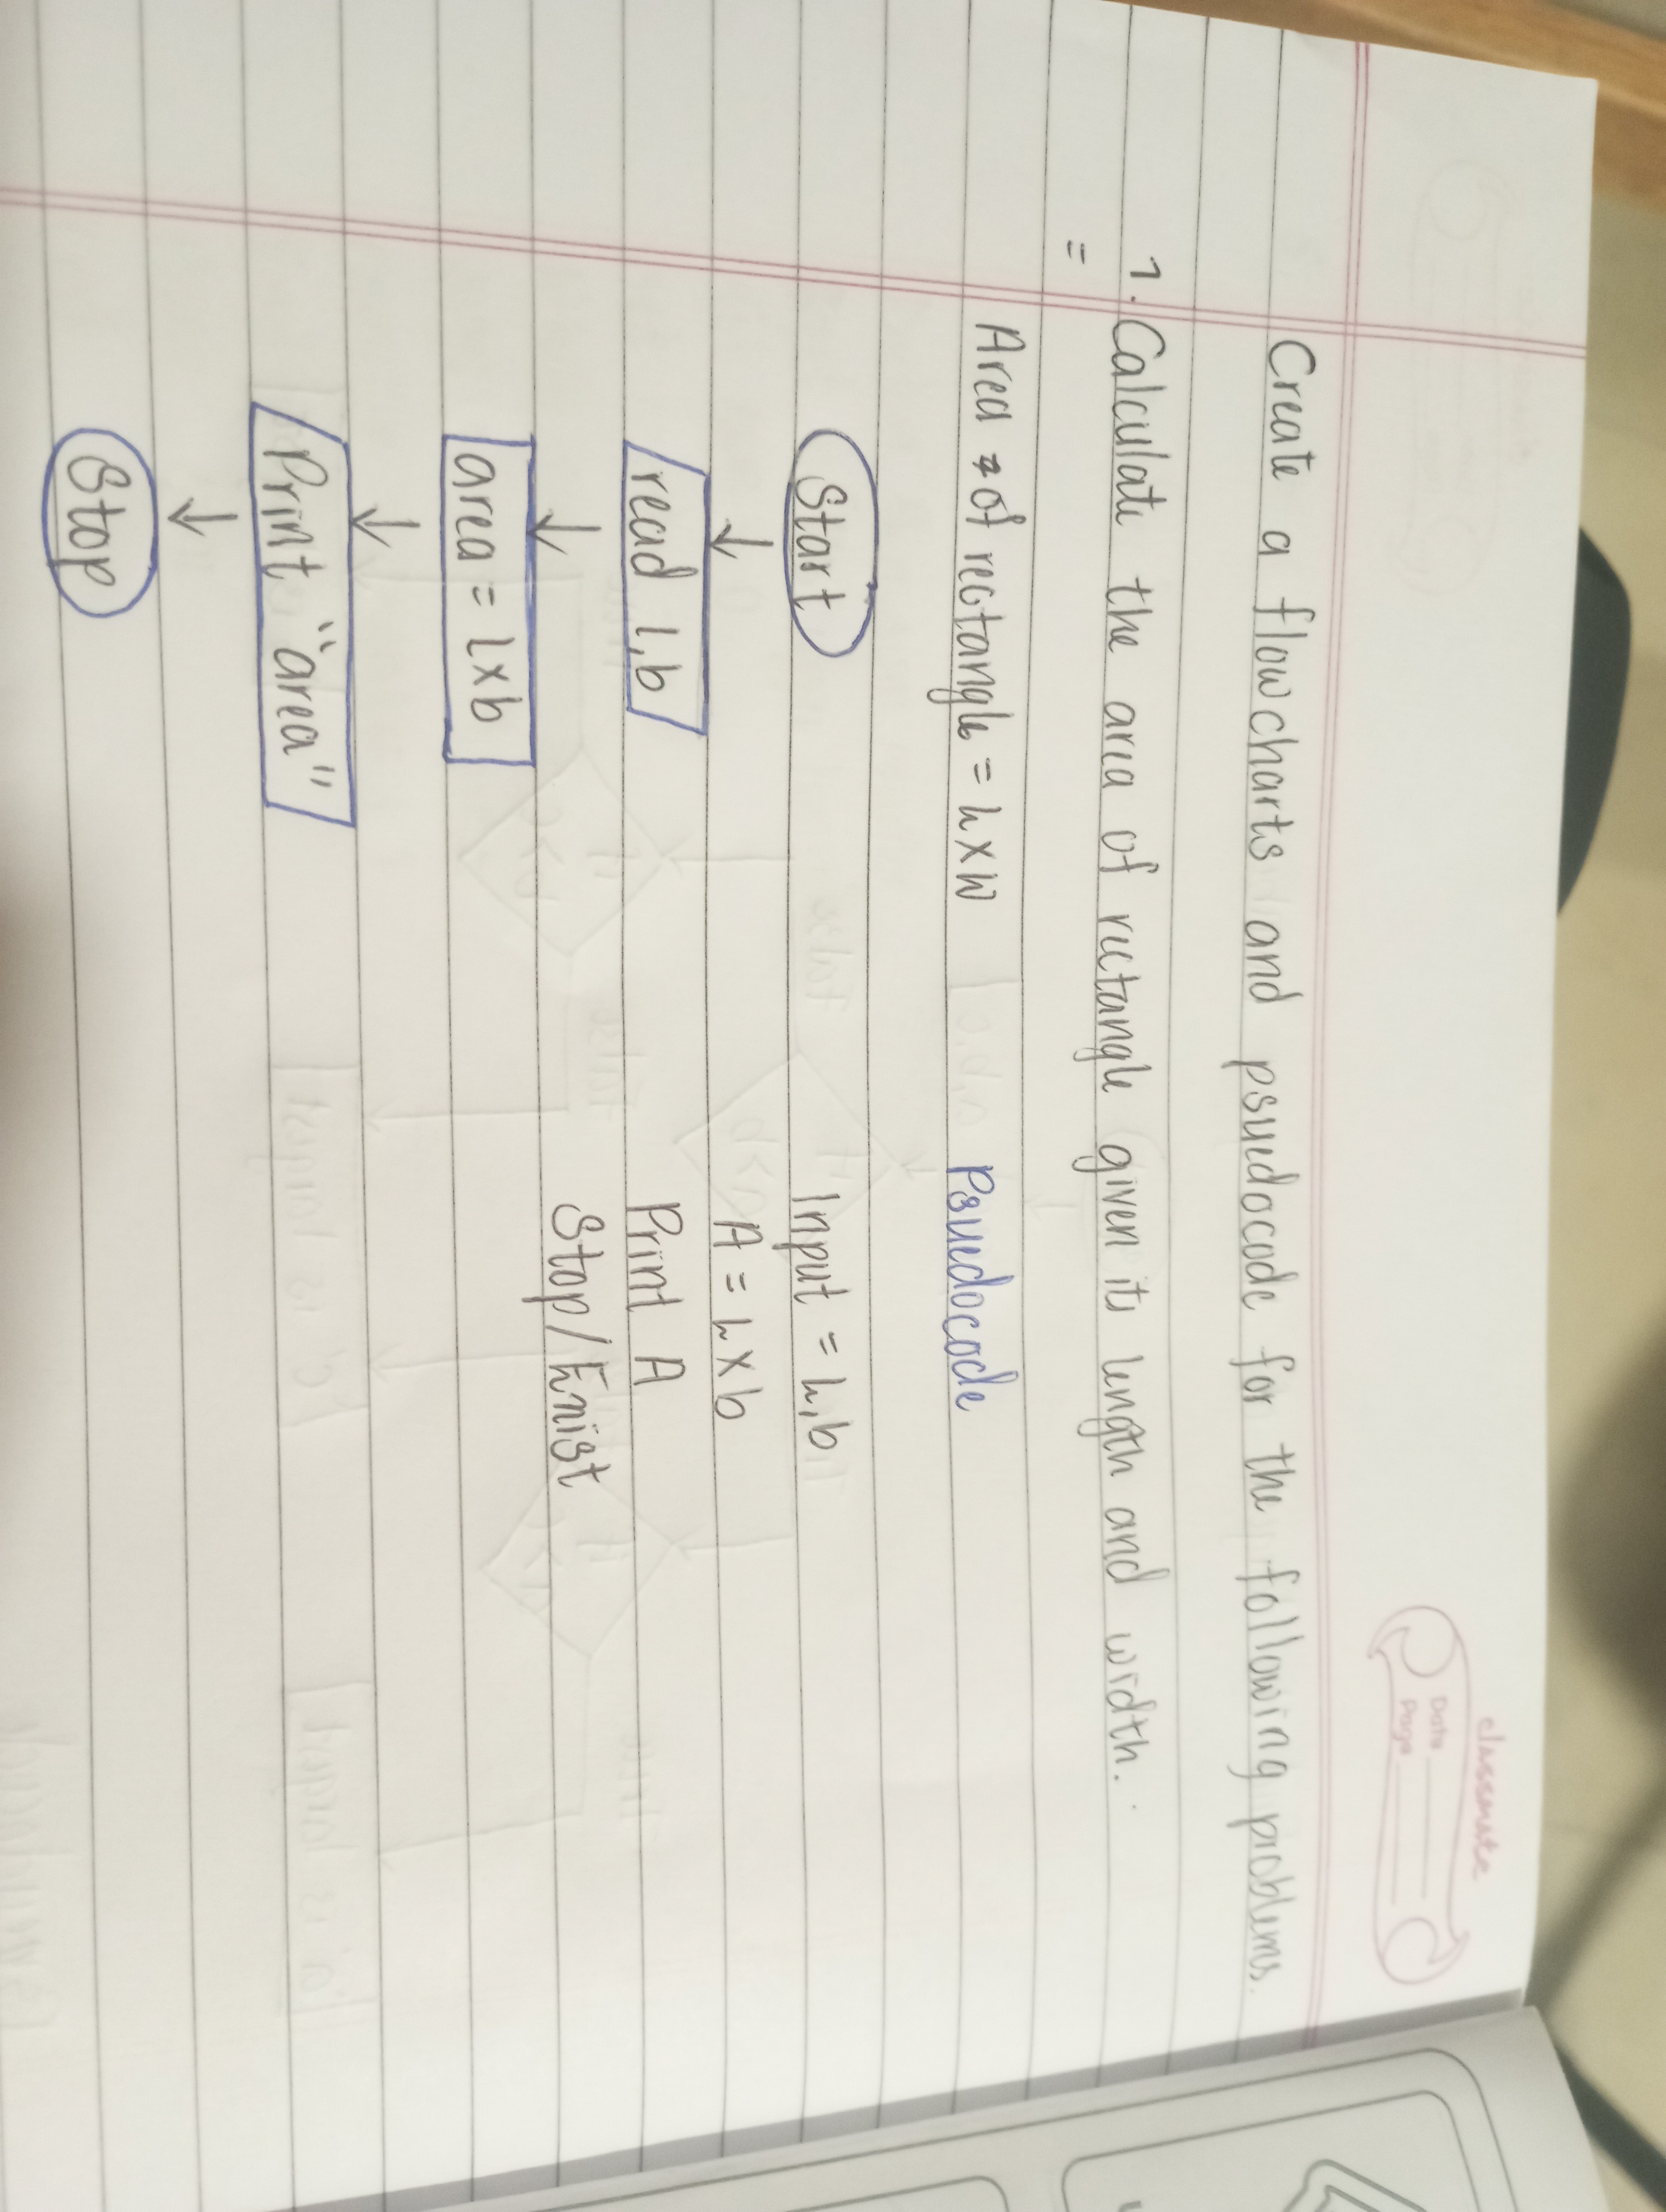 classmate
Date
Page
Create a flowcharts and psuedocode for the following problems.
1. Calculate the area of rectangle given its length and width.
=
Area of rectangle = L x W
Psuedocode
Start
read l,b
area = L x b
Print "area"
Stop
Input = L,b
A = L x b
Print A
Stop / Enist